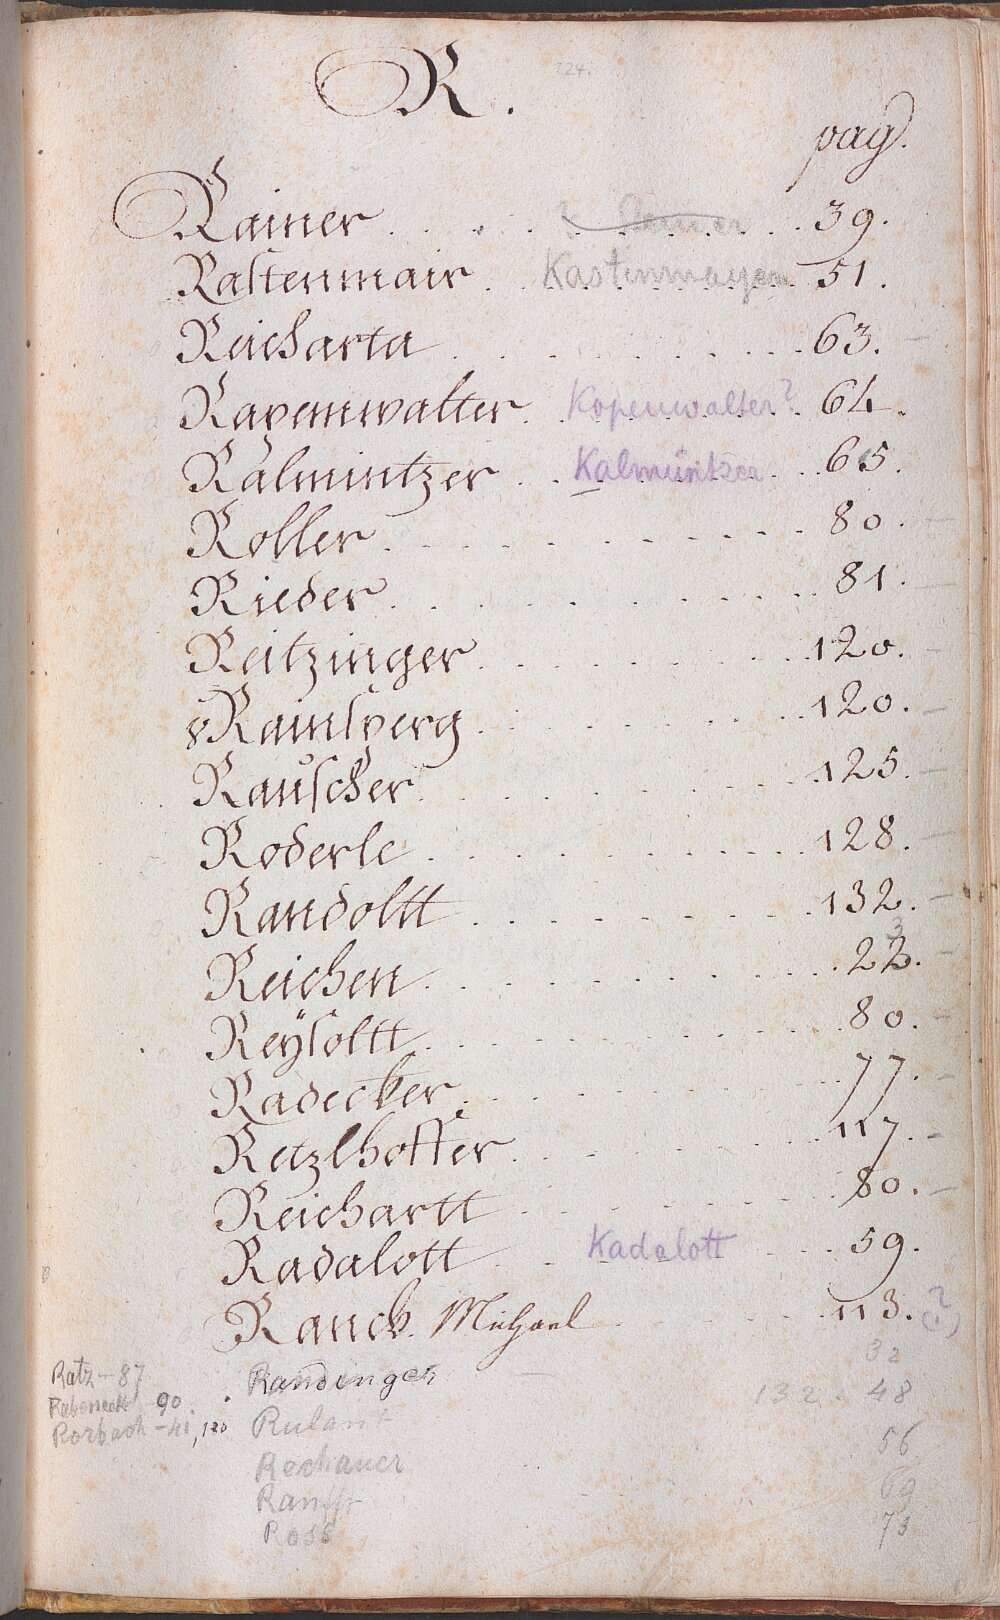 R.
pag.
Rainer 39.
Rastenmair Kastenmayer 51.
Reicharta 63.
Rapenwalter Kopenwalter? 64.
Ralmintzer Kalmüntzer 65.
Roller 80.
Rieder 81.
Reitzinger 120.
Rainsperg 120.
Rauscher 125.
Roderle 128.
Randoltt 132.
Reichen 22. 3
Reÿsoltt 80.
Radecker 77.
Retzlhoffer 117.
Reichartt 80.
Radalott Kadalott 59.
Ranck. Michael 113. (?)
Ratz - 87 Randinger 32
90 132. 48
Rorbach - 41, 120 Rulant 56
Rechauer 69
73
Ross